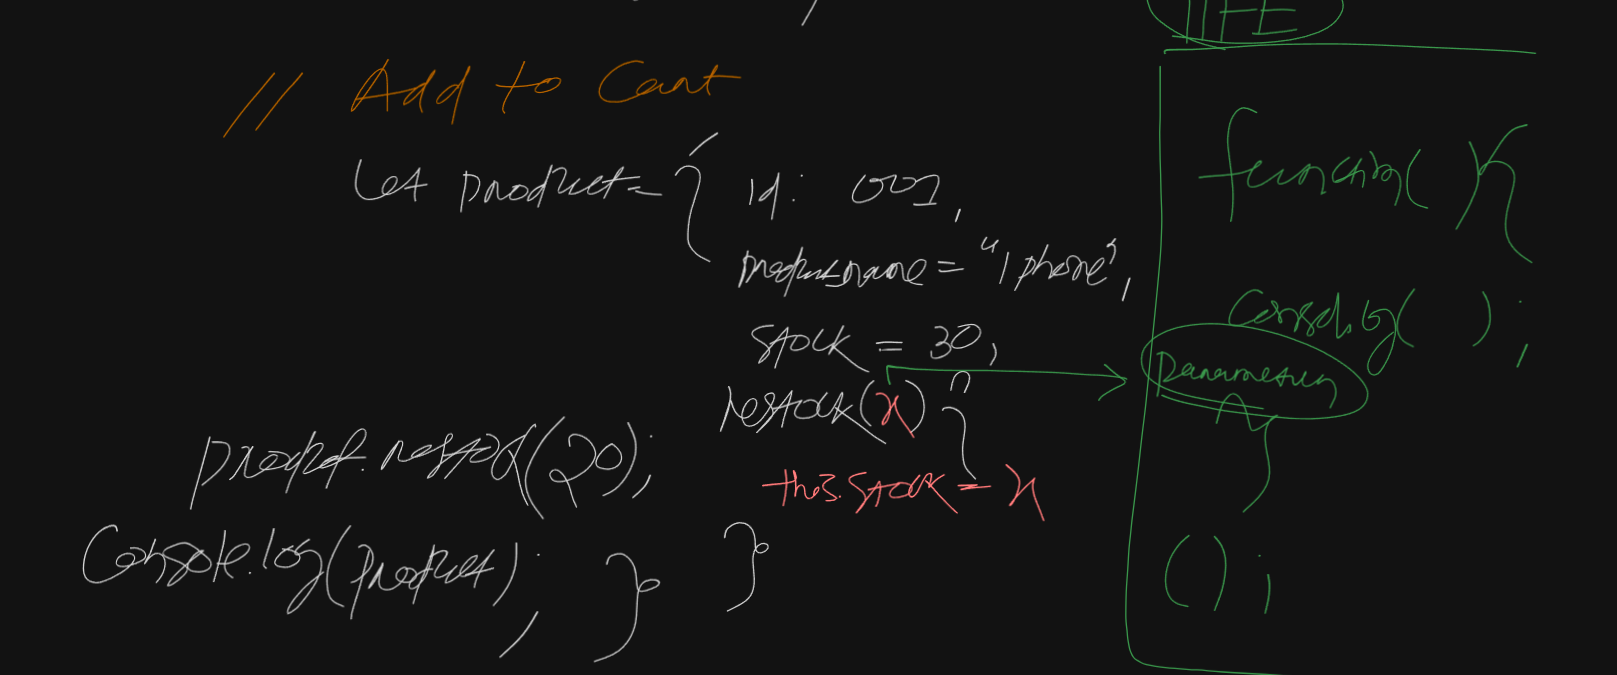 // Add to Cart
let product = { id: 001,
product_name = "Iphone",
stock = 30,
restock(x) {
this.stock = x
}
}
product.restock(20);
Console.log(product);
IIFE
function( ){
Console.log( );
parameters
}
();